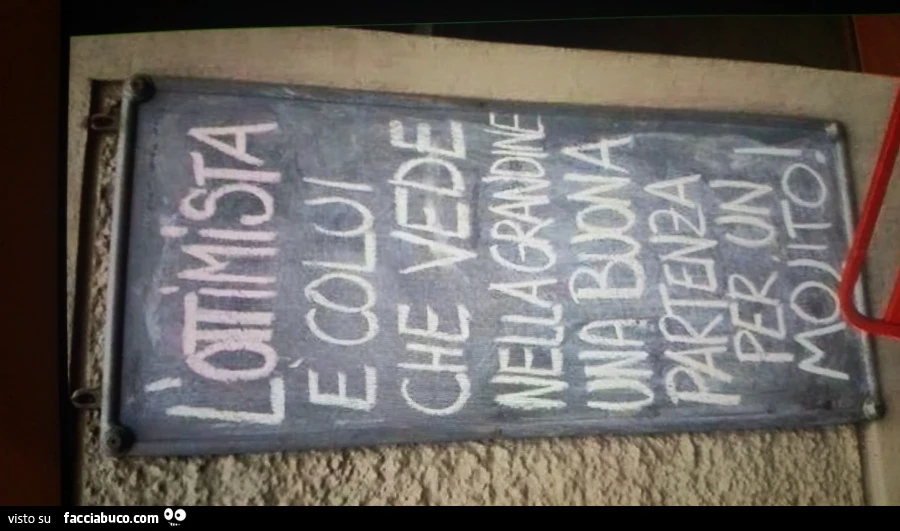 L'OTTIMISTA
È COLUI
CHE VEDE
NELLA GRANDINE
UNA BUONA
PARTENZA
PER UN
MOJITO!
visto su facciabuco.com